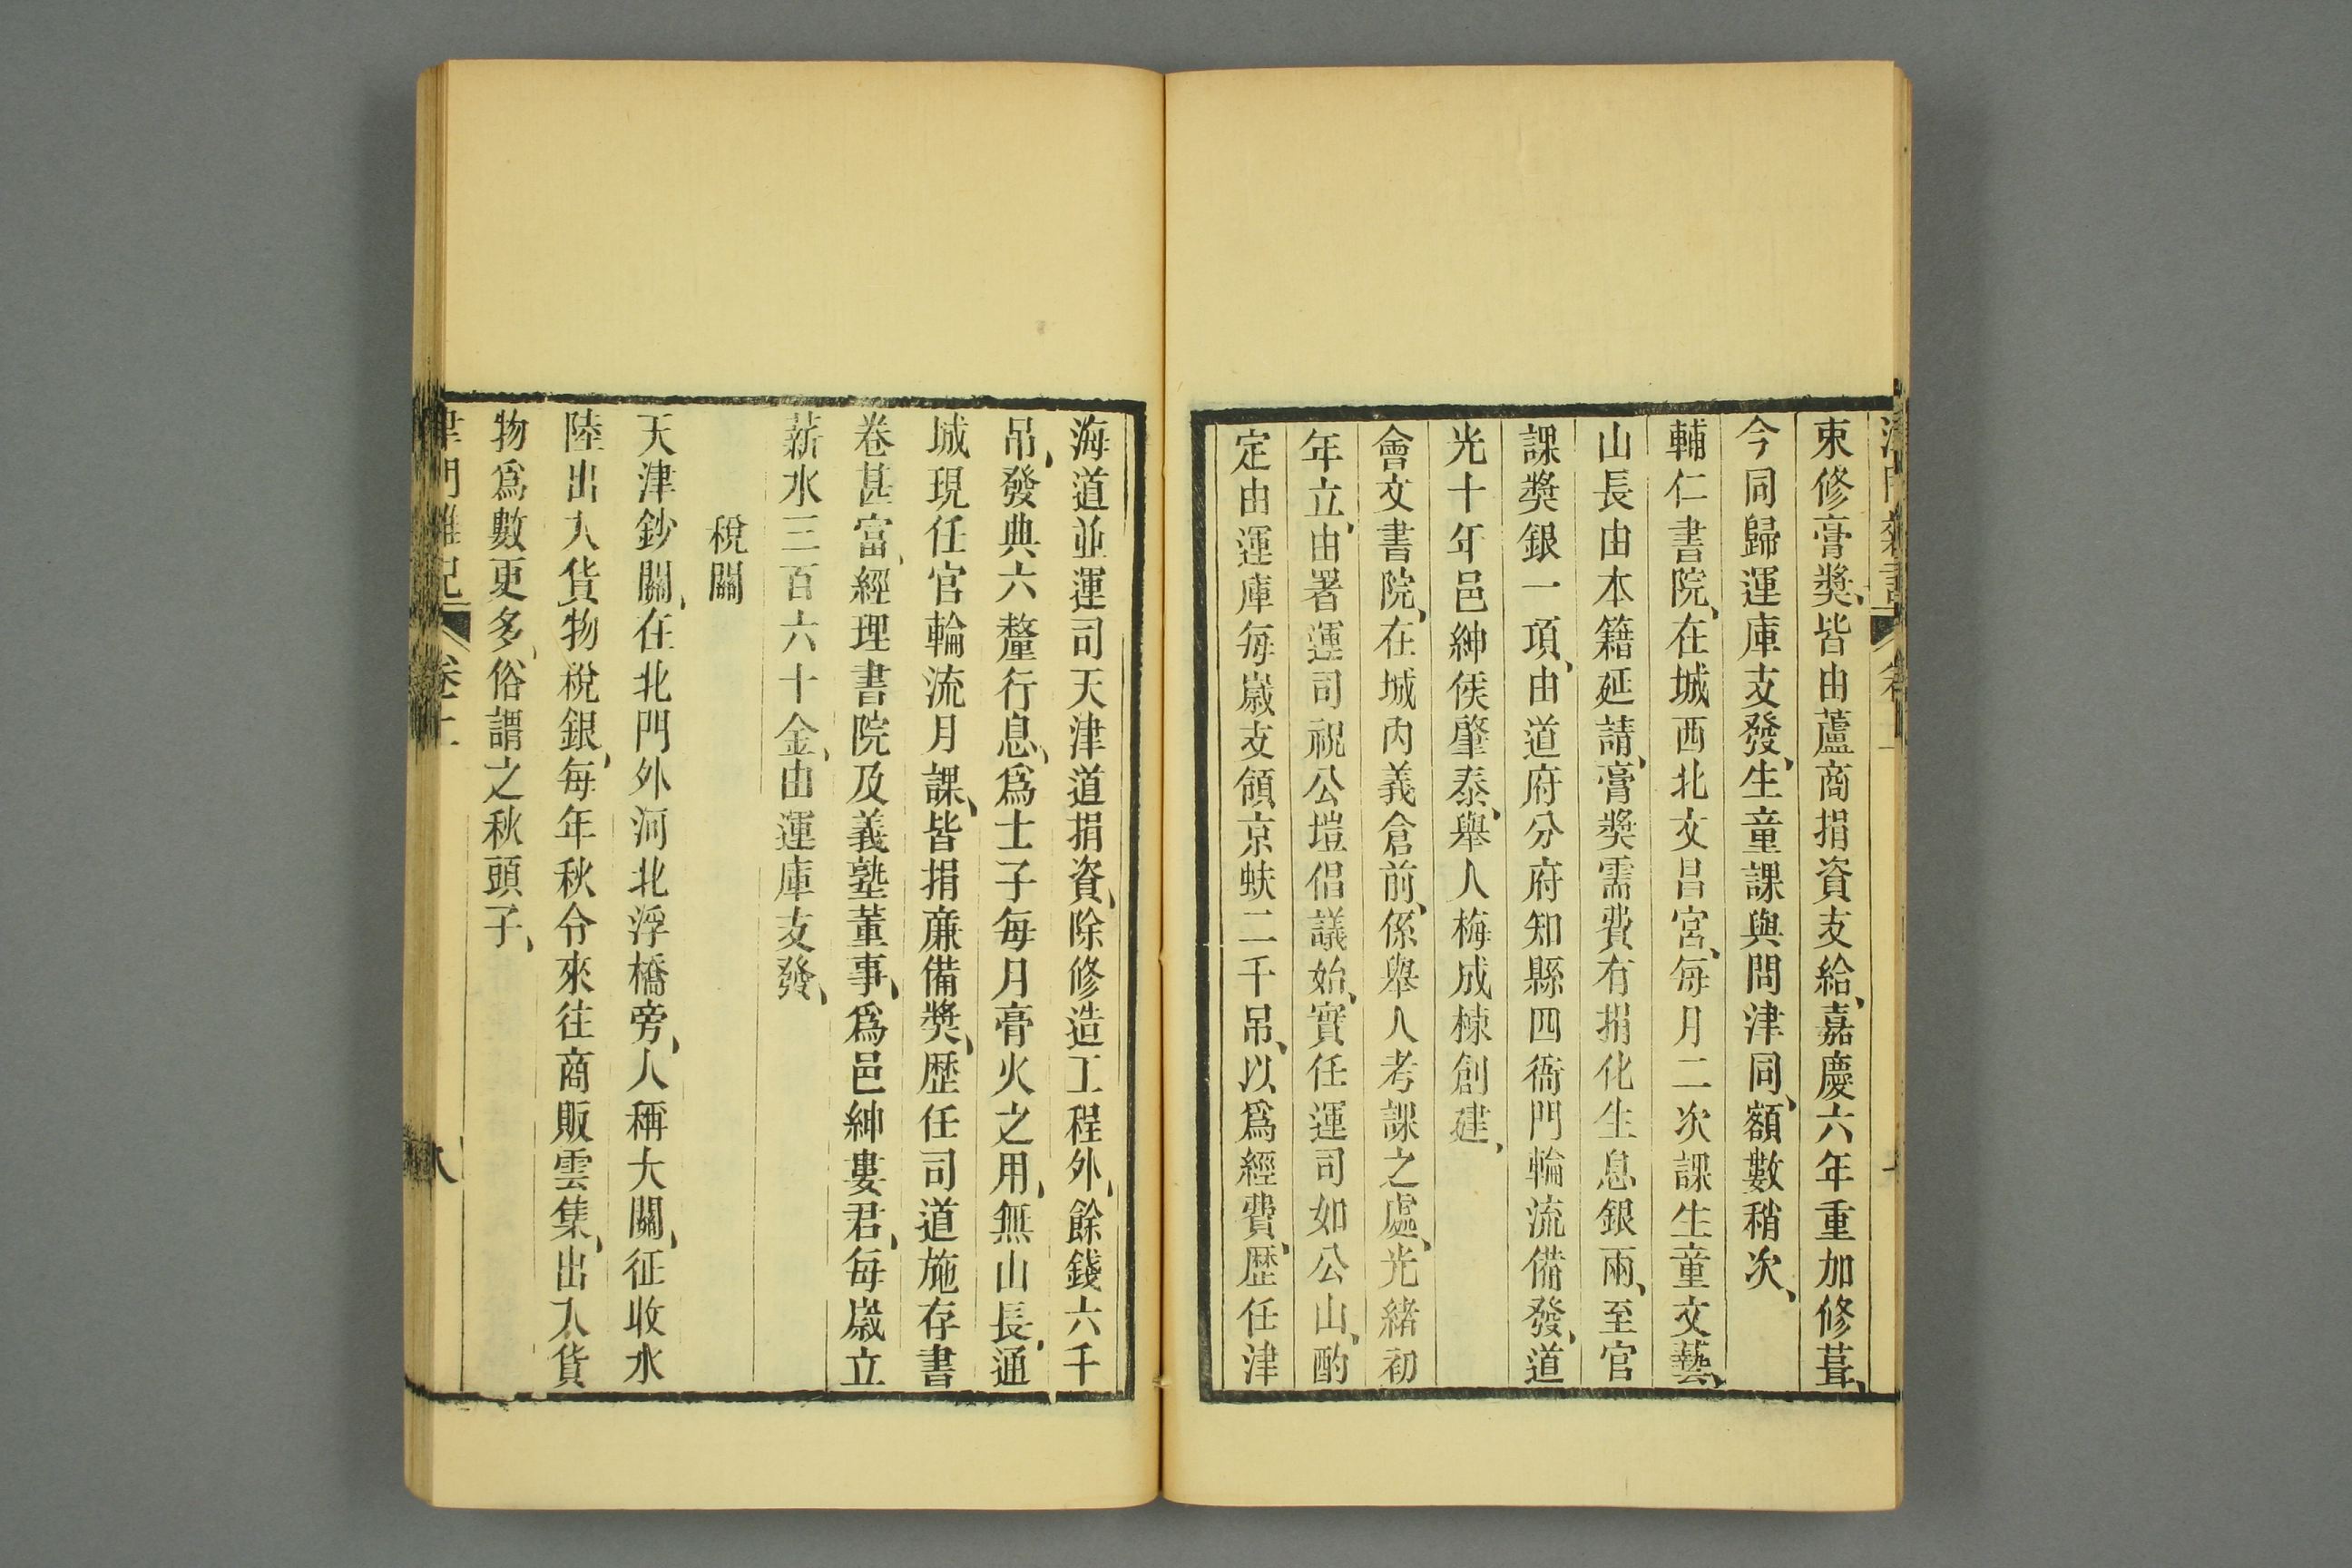 束修膏奬、皆由蘆商捐資支給、嘉慶六年重加修葺、
今同歸運庫支發、生童課與問津同、額數稍次、
輔仁書院、在城西北文昌宮、每月二次課生童文藝、
山長由本籍延請、膏奬需費有捐化生息銀兩、至官
課奬銀一項、由道府分府知縣四衙門輪流備發、道
光十年邑紳侯肇泰、舉人梅成棟創建、
會文書院、在城內義倉前、係舉人考課之處、光緒初
年立、由署運司祝公塏倡議始、實任運司如公山、酌
定由運庫每歲支領京蚨二千吊、以爲經費、歷任津
海道並運司天津道捐資、除修造工程外、餘錢六千
吊、發典六釐行息、爲士子每月膏火之用、無山長、通
城現任官輪流月課、皆捐廉備奬、歷任司道施存書
卷甚富、經理書院及義塾董事、爲邑紳婁君、每歲立
薪水三百六十金、由運庫支發、
稅關
天津鈔關、在北門外河北浮橋旁、人稱大關、征收水
陸出入貨物稅銀、每年秋令來往商販雲集、出入貨
物爲數更多、俗謂之秋頭子、
津門雜記 卷上 八